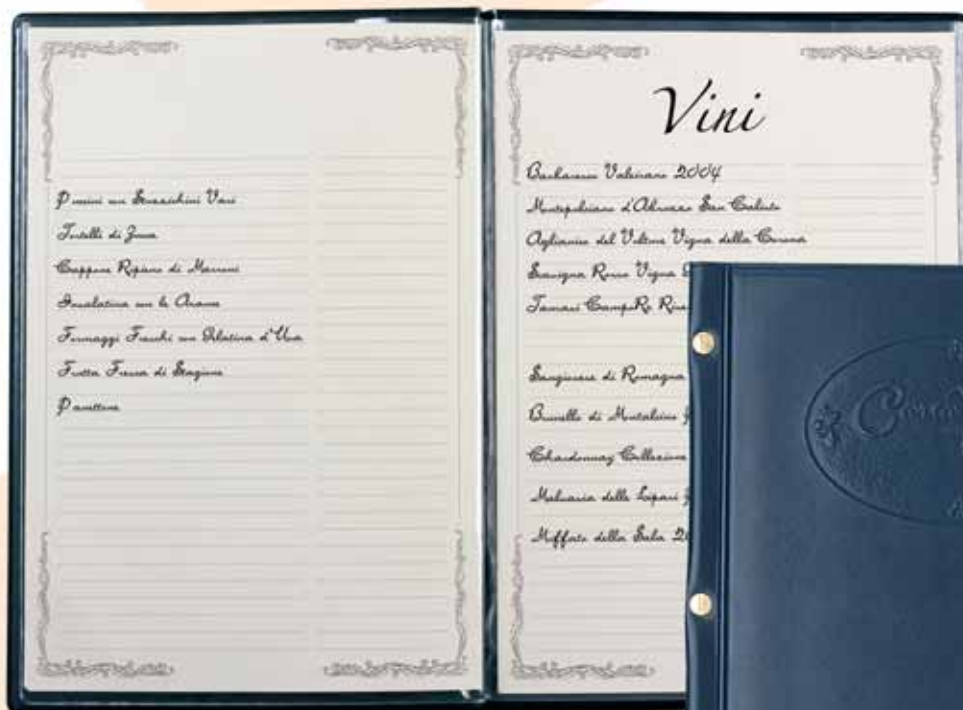 Panini con Stuzzichini Vari
Tortelli di Zucca
Cappone Ripieno di Marroni
Insalatina con le Arance
Formaggi Freschi con Gelatina d'Uva
Frutta Fresca di Stagione
Panettone
Vini
Barbaresco 2004
Montepulciano d'Abruzzo San Calisto
Aglianico del Vulture Vigna della Corona
Rosso Vigna
Sangiovese di Romagna
Brunello di Montalcino
Chardonnay Collezione
Malvasia delle Lipari
Muffato della Sala